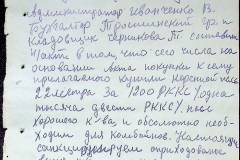 Администратор Иванченко В.
Бухгалтер Тростинский Ср. и
Кладовщик Черникова Т. составили
акт в том, что сего числа на
основании Акта покупки к сему
прилагаемого купили шерстной
22 метра за 1200 РККС /одна
тысяча двести РККС/
хорошего к-ва, и обсолютно необ-
ходим для комбайнов. Настоящим
санкционируем оприходование